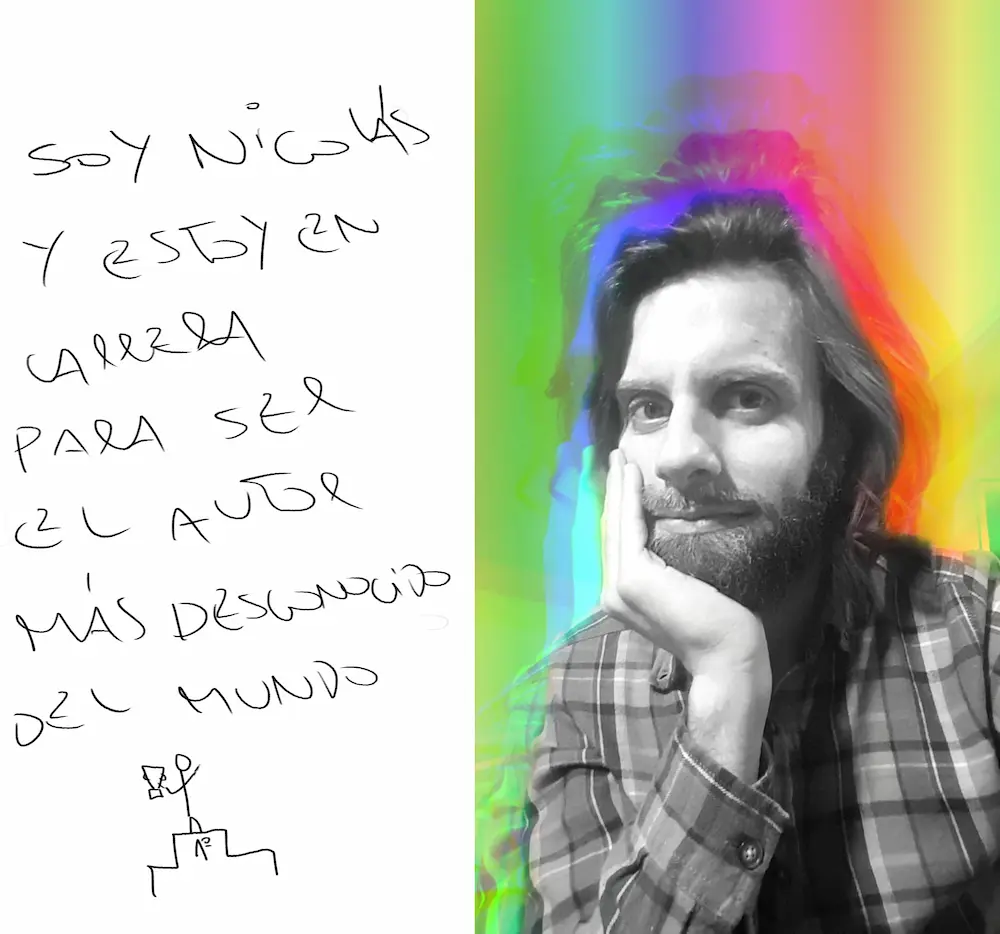 SOY NiCOLÁS
Y ESTOY EN
CARRERA
PARA SER
EL AUTOR
MÁS DESCONOCIDO
DEL MUNDO
1º